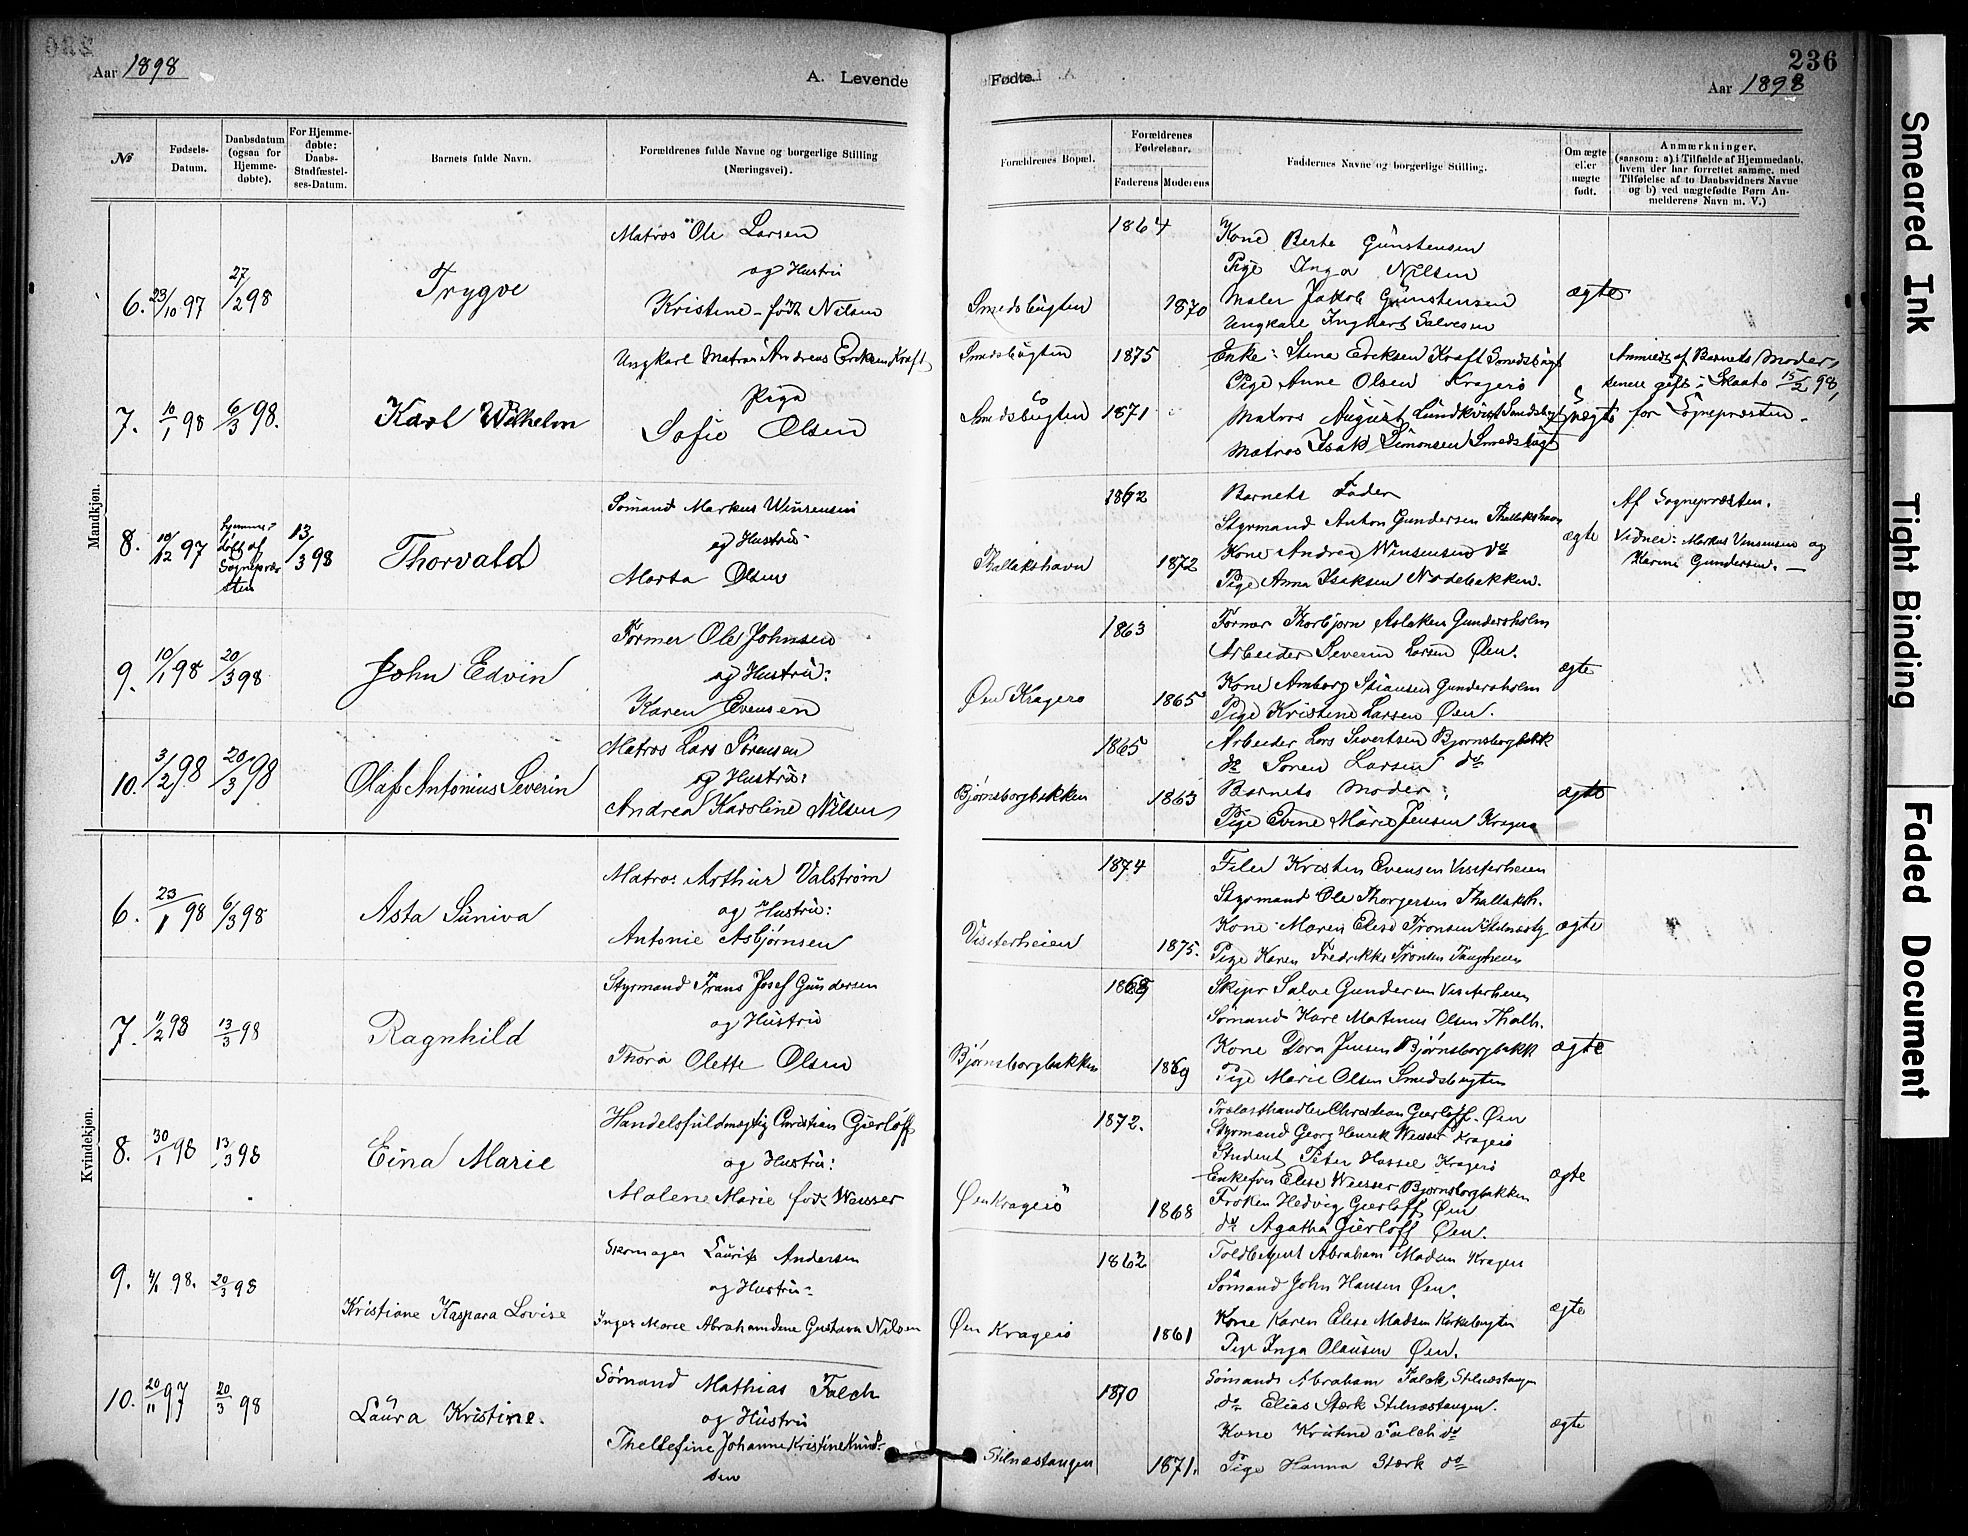 236
Aar 1898
A. Levende
Fødte.
Aar 1898
№
Fødsels-Datum.
Daabsdatum (ogsaa for Hjemme-døbte).
For Hjemme-døbte: Daabs-Stadfæstel-ses-Datum.
Barnets fulde Navn.
Forældrenes fulde Navne og borgerlige Stilling (Næringsvei).
Forældrenes Bopæl.
Forældrenes Fødselsaar.
Faderens
Moderens
Faddernes Navne og borgerlige Stilling.
Om ægte eller uægte født.
Anmærkninger.
(saasom: a) i Tilfælde af Hjemmedaab, hvem der har forrettet samme, med Tilføielse af to Daabsvidners Navne og b) ved uægtefødte Børn An-melderens Navn m. V.)
Mandkjøn.
6. 23/10 97 27/2 98 Trygve
Matros Ole Larsen
og Hustru
Kristine født Nilsen
Smedsbugten 1864 1870
Kone Berte Gunstensen
Pige Inga Nilsen
Maler Jakob Gunstensen
Ungkarl Ingbert Salvesen
ægte
7. 10/1 98 6/3 98. Karl Wilhelm
Ungkarl Matros Andreas Ericksen Kraft
Pige
Sofie Olsen
Smedsbugten 1875
Smedsbugten 1871
Enke: Stena Ericksen Kraft Smedsbugt
Pige Anne Olsen Kragerø
Matros August Lundkvist Smedsbugt
Matros Isak Simonsen Smedsbugt
uægte
Anmeldt af Barnets Moder,
senere gift i Skaato 15/2 98,
for Sognepræsten.
8. 10/12 97 hjemmedøbt af Sognepræsten 13/3 98 Thorvald
Sømand Markus Winsensen
og Hustru
Marta Olsen
Thallakshavn 1862 1872
Barnets Fader
Styrmand Anton Gundersen Thallakshavn
Kone Andrea Winsensen do
Pige Anna Isaksen Nodebakken.
ægte
Af Sognepræsten.
Vidner: Markus Vinsensen og
Karine Gundersen.
9. 10/1 98 20/3 98 John Edvin
Former Ole Johnsen
og Hustru:
Karen Evensen
Øen Kragerø 1863 1865
Formar Thorbjørn Aslaksen Gundersholm
Arbeider Severin Larsen Øen.
Kone Amborg Stiansen Gundersholm
Pige Kristine Larsen Øen.
ægte
10. 3/2 98 20/3 98 Olaf Antonius Severin
Matros Lars Sørensen
og Hustru:
Andrea Karoline Nilsen
Bjørnsborgbakken 1865 1863
Arbeider Lars Sivertsen Bjørnsborgbakk
do Søren Larsen do
Barnets Moder:
Pige Evine Marie Jensen Kragerø
ægte
Kvindekjøn.
6. 23/1 98 6/3 98 Asta Suniva
Matros Arthur Valstrøm
og Hustru:
Antonie Asbjørnsen
Visterheien 1874 1875.
Filer Kristen Evensen Visterheien
Styrmand Ole Thorgersen Thallaksh.
Kone Maren Elise Tronsen Stilnæstg
Pige Karen Fredrikke Tronsen Tangheien
ægte
7. 11/2 98 13/3 98 Ragnhild
Styrmand Frans Josef Gundersen
og Hustru
Thora Olette Olsen
Bjørnsborgbakken 1868 1869
Skipr Salve Gundersen Visterheien
Sømand Karl Martinus Olsen Thallk.
Kone Dora Jensen Bjørnsborgbakk
Pige Marie Olsen Smedsbugten
ægte
8. 30/1 98 13/3 98 Eina Marie
Handelsfuldmægtig Christian Gierløff
og Hustru:
Malene Marie født Weisser
Øen Kragerø 1872. 1868
Trælasthandler Christian Gierløff Øen
Styrmand Georg Henrik Weisser Kragerø
Student Peter Hassel Kragerø
Enkefru Elise Weisser Bjørnsborgbakken
Frøken Hedvig Gierløff Øen
do Agatha Gierløff Øen.
ægte
9. 4/1 98. 20/3 98 Kristiane Kaspara Lovise
Skomager Laurits Andersen
og Hustru:
Inger Marie Abrahamdene Gustava Nilsen
Øen Kragerø 1862 1861
Toldbetjent Abraham Madsen Kragerø
Sømand John Hansen Øen.
Kone Karen Elise Madsen Kirkebugten
Pige Inga Olausen Øen.
ægte
10. 20/11 97 20/3 98 Laura Kristine.
Sømand Mathias Falch
og Hustru
Thellefine Johanne Kristine Knud-
sen
Stilnæstangen 1870 1871.
Sømand Abraham Falck Stilnæstangen
do Elias Stærk Stilnæstangen.
Kone Kristine Falch do
Pige Hanna Stærk do
ægte
Smeared Ink
Tight Binding
Faded Document